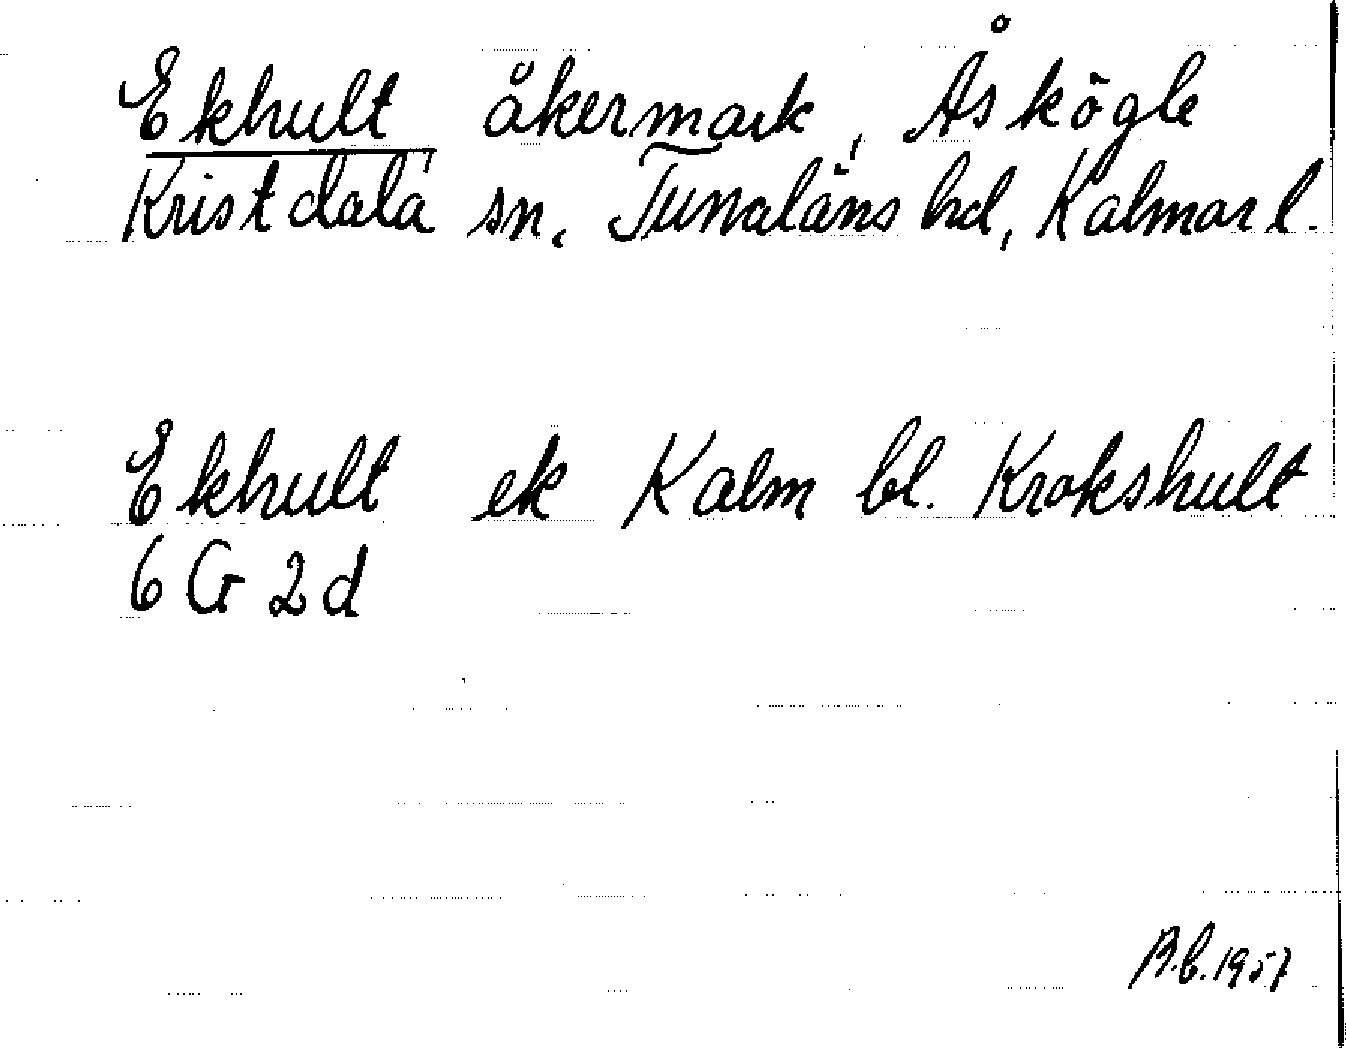 Ekhult åkermark, Åskögle
Kristdala sn, Tunaläns hd, Kalmar l.
Ekhult ek Kalm bl. Krokshult
6 G 2d
B.b. 1957